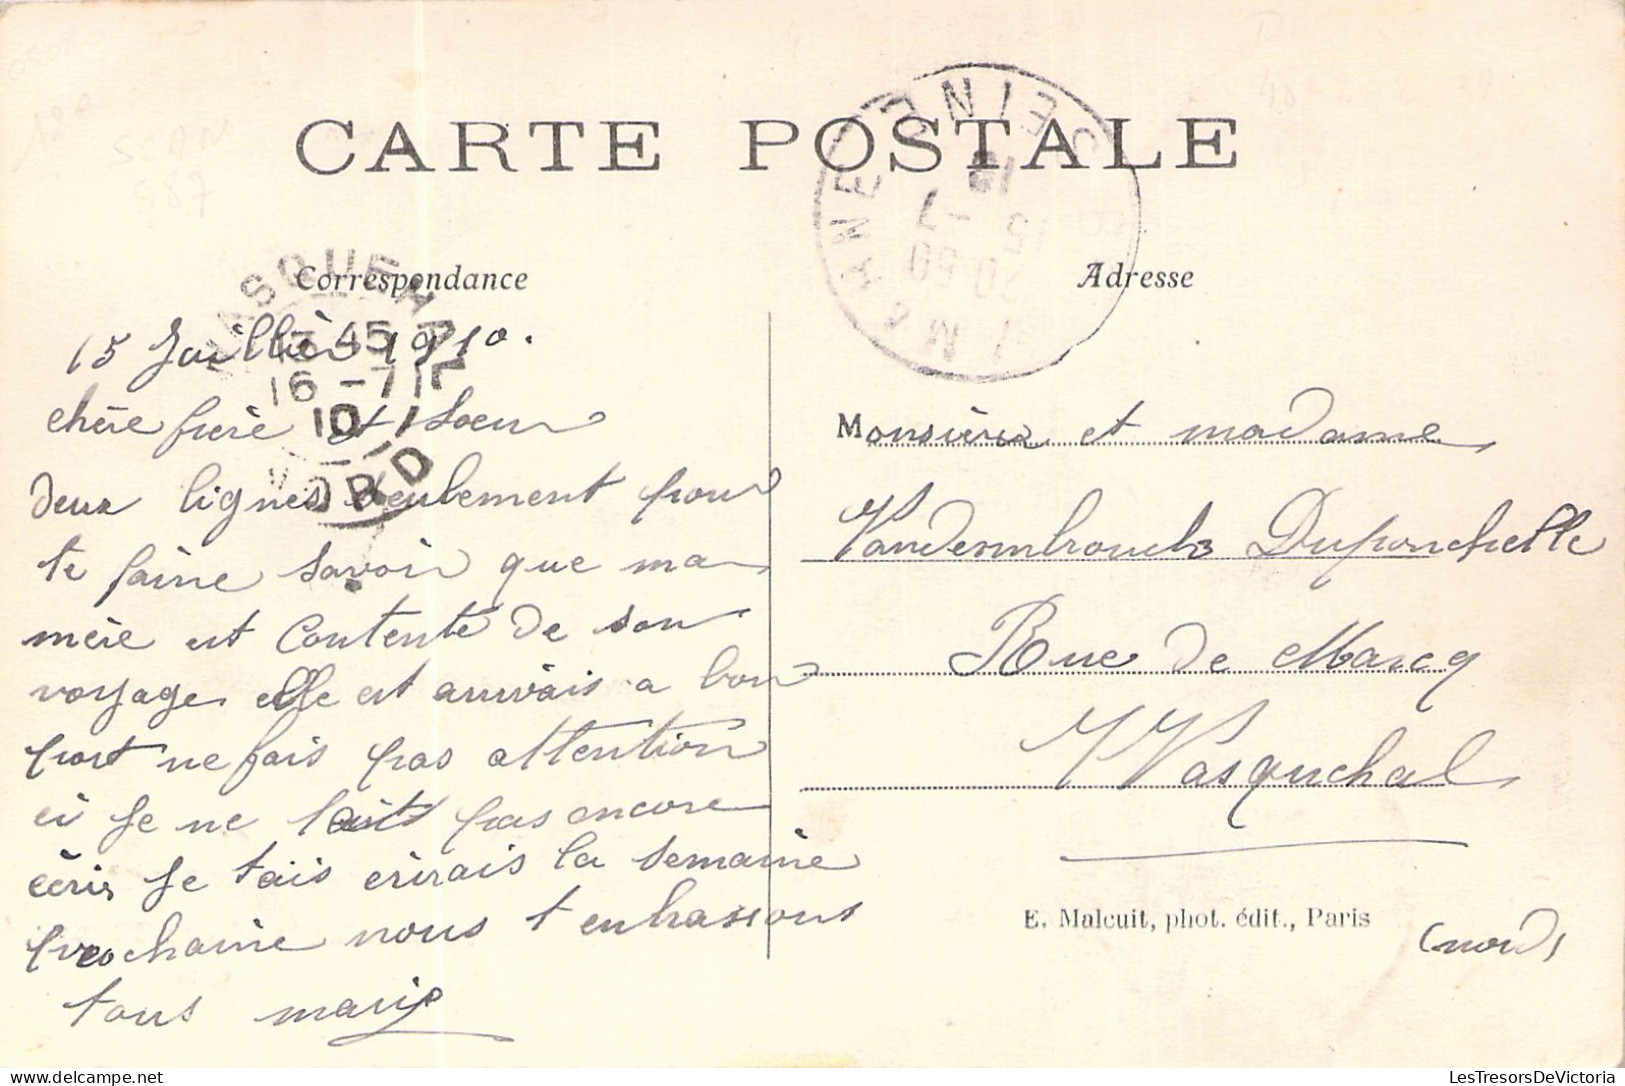 CARTE POSTALE
Correspondance
Adresse
WASQUEHAL
13 45
16 -7
10
NORD
SEINE
15 -7
10
15 Juillié 1910.
chère frère et Soeur
deux lignes seulement pour
te faire savoir que ma
mère est Contente de son
voyage elle est arrivais a bon
port ne fais pas attention
si je ne
pas encore
écris je tais crirais la semaine
prochaine nous t enbrassons
tous marie
Monsieur et madame
Vandermbrouck Duponchelle
Rue de Marcq
Wasquehal
(nord)
E. Malcuit, phot. édit., Paris
SCAN
587
LesTresorsDeVictoria